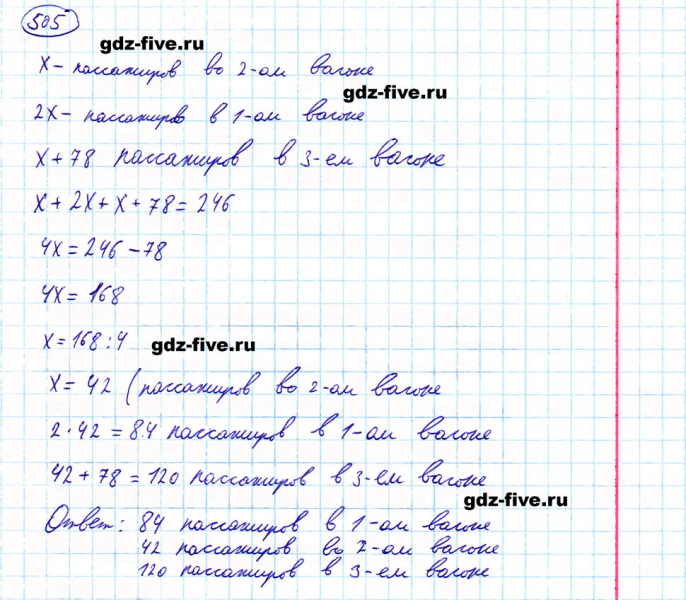 505
gdz-five.ru
x – пассажиров во 2-ом вагоне
gdz-five.ru
2x – пассажиров в 1-ом вагоне
x + 78 пассажиров в 3-ем вагоне
x + 2x + x + 78 = 246
4x = 246 – 78
4x = 168
x = 168 : 4
gdz-five.ru
x = 42 (пассажиров во 2-ом вагоне
2 · 42 = 84 пассажиров в 1-ом вагоне
42 + 78 = 120 пассажиров в 3-ем вагоне
gdz-five.ru
Ответ: 84 пассажиров в 1-ом вагоне
42 пассажиров во 2-ом вагоне
120 пассажиров в 3-ем вагоне